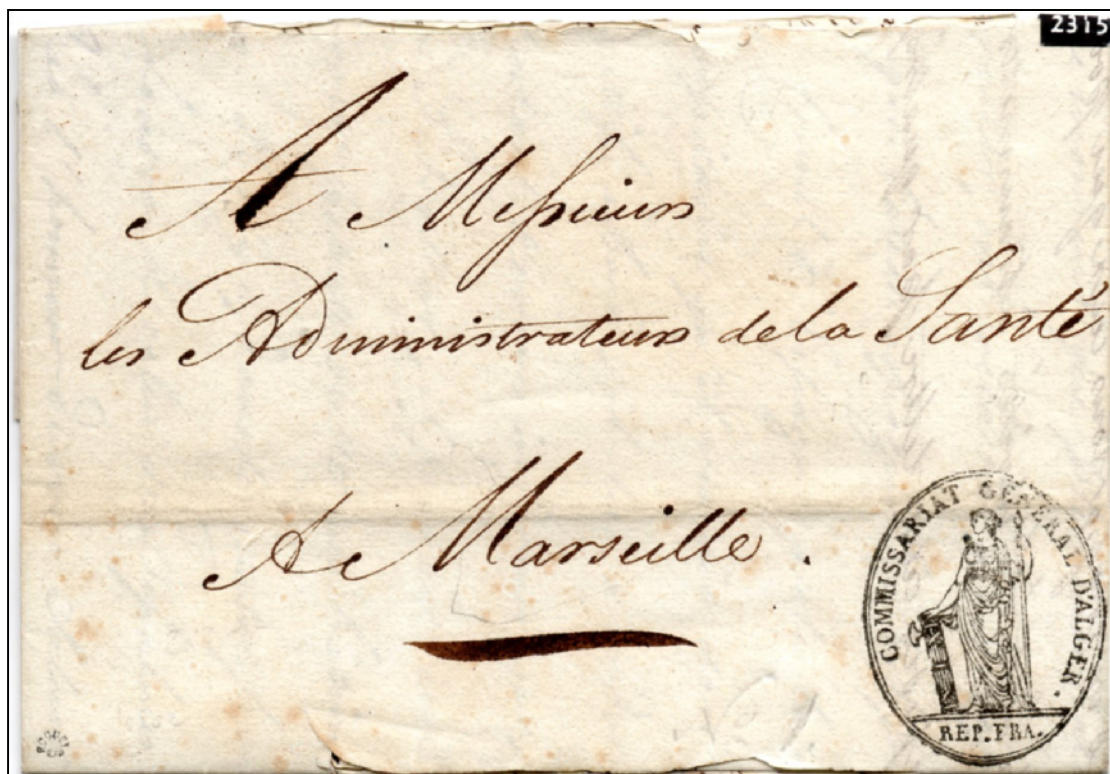 2315
A Messieurs
les Administrateurs de la Santé
A Marseille.
COMMISSARIAT GENERAL D'ALGER.
REP. FRA.